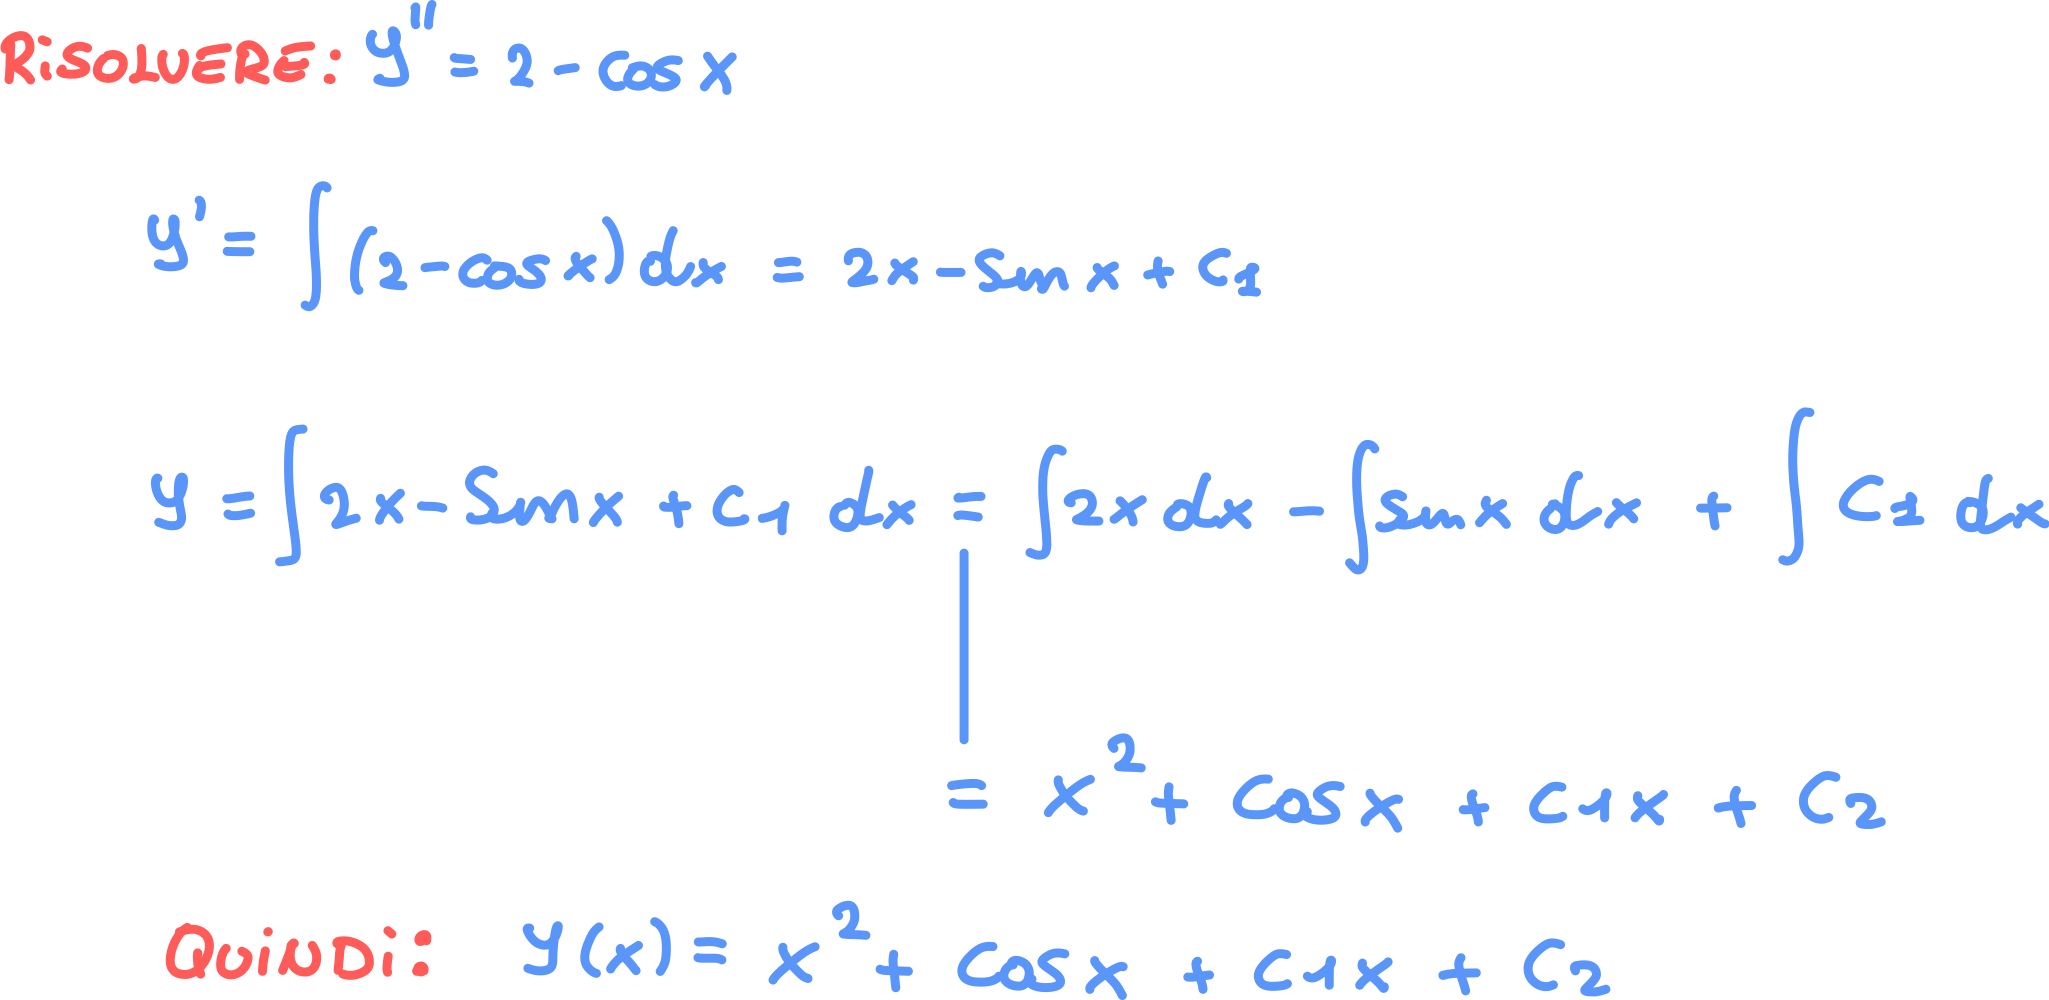 RiSOLVERE: y'' = 2 - cos x
y' = ∫ (2 - cos x) dx = 2x - Sin x + C₁
y = ∫ 2x - Sin x + C₁ dx = ∫ 2x dx - ∫ sin x dx + ∫ C₁ dx
= x² + cos x + C₁x + C₂
QUiNDi: y(x) = x² + cos x + C₁x + C₂